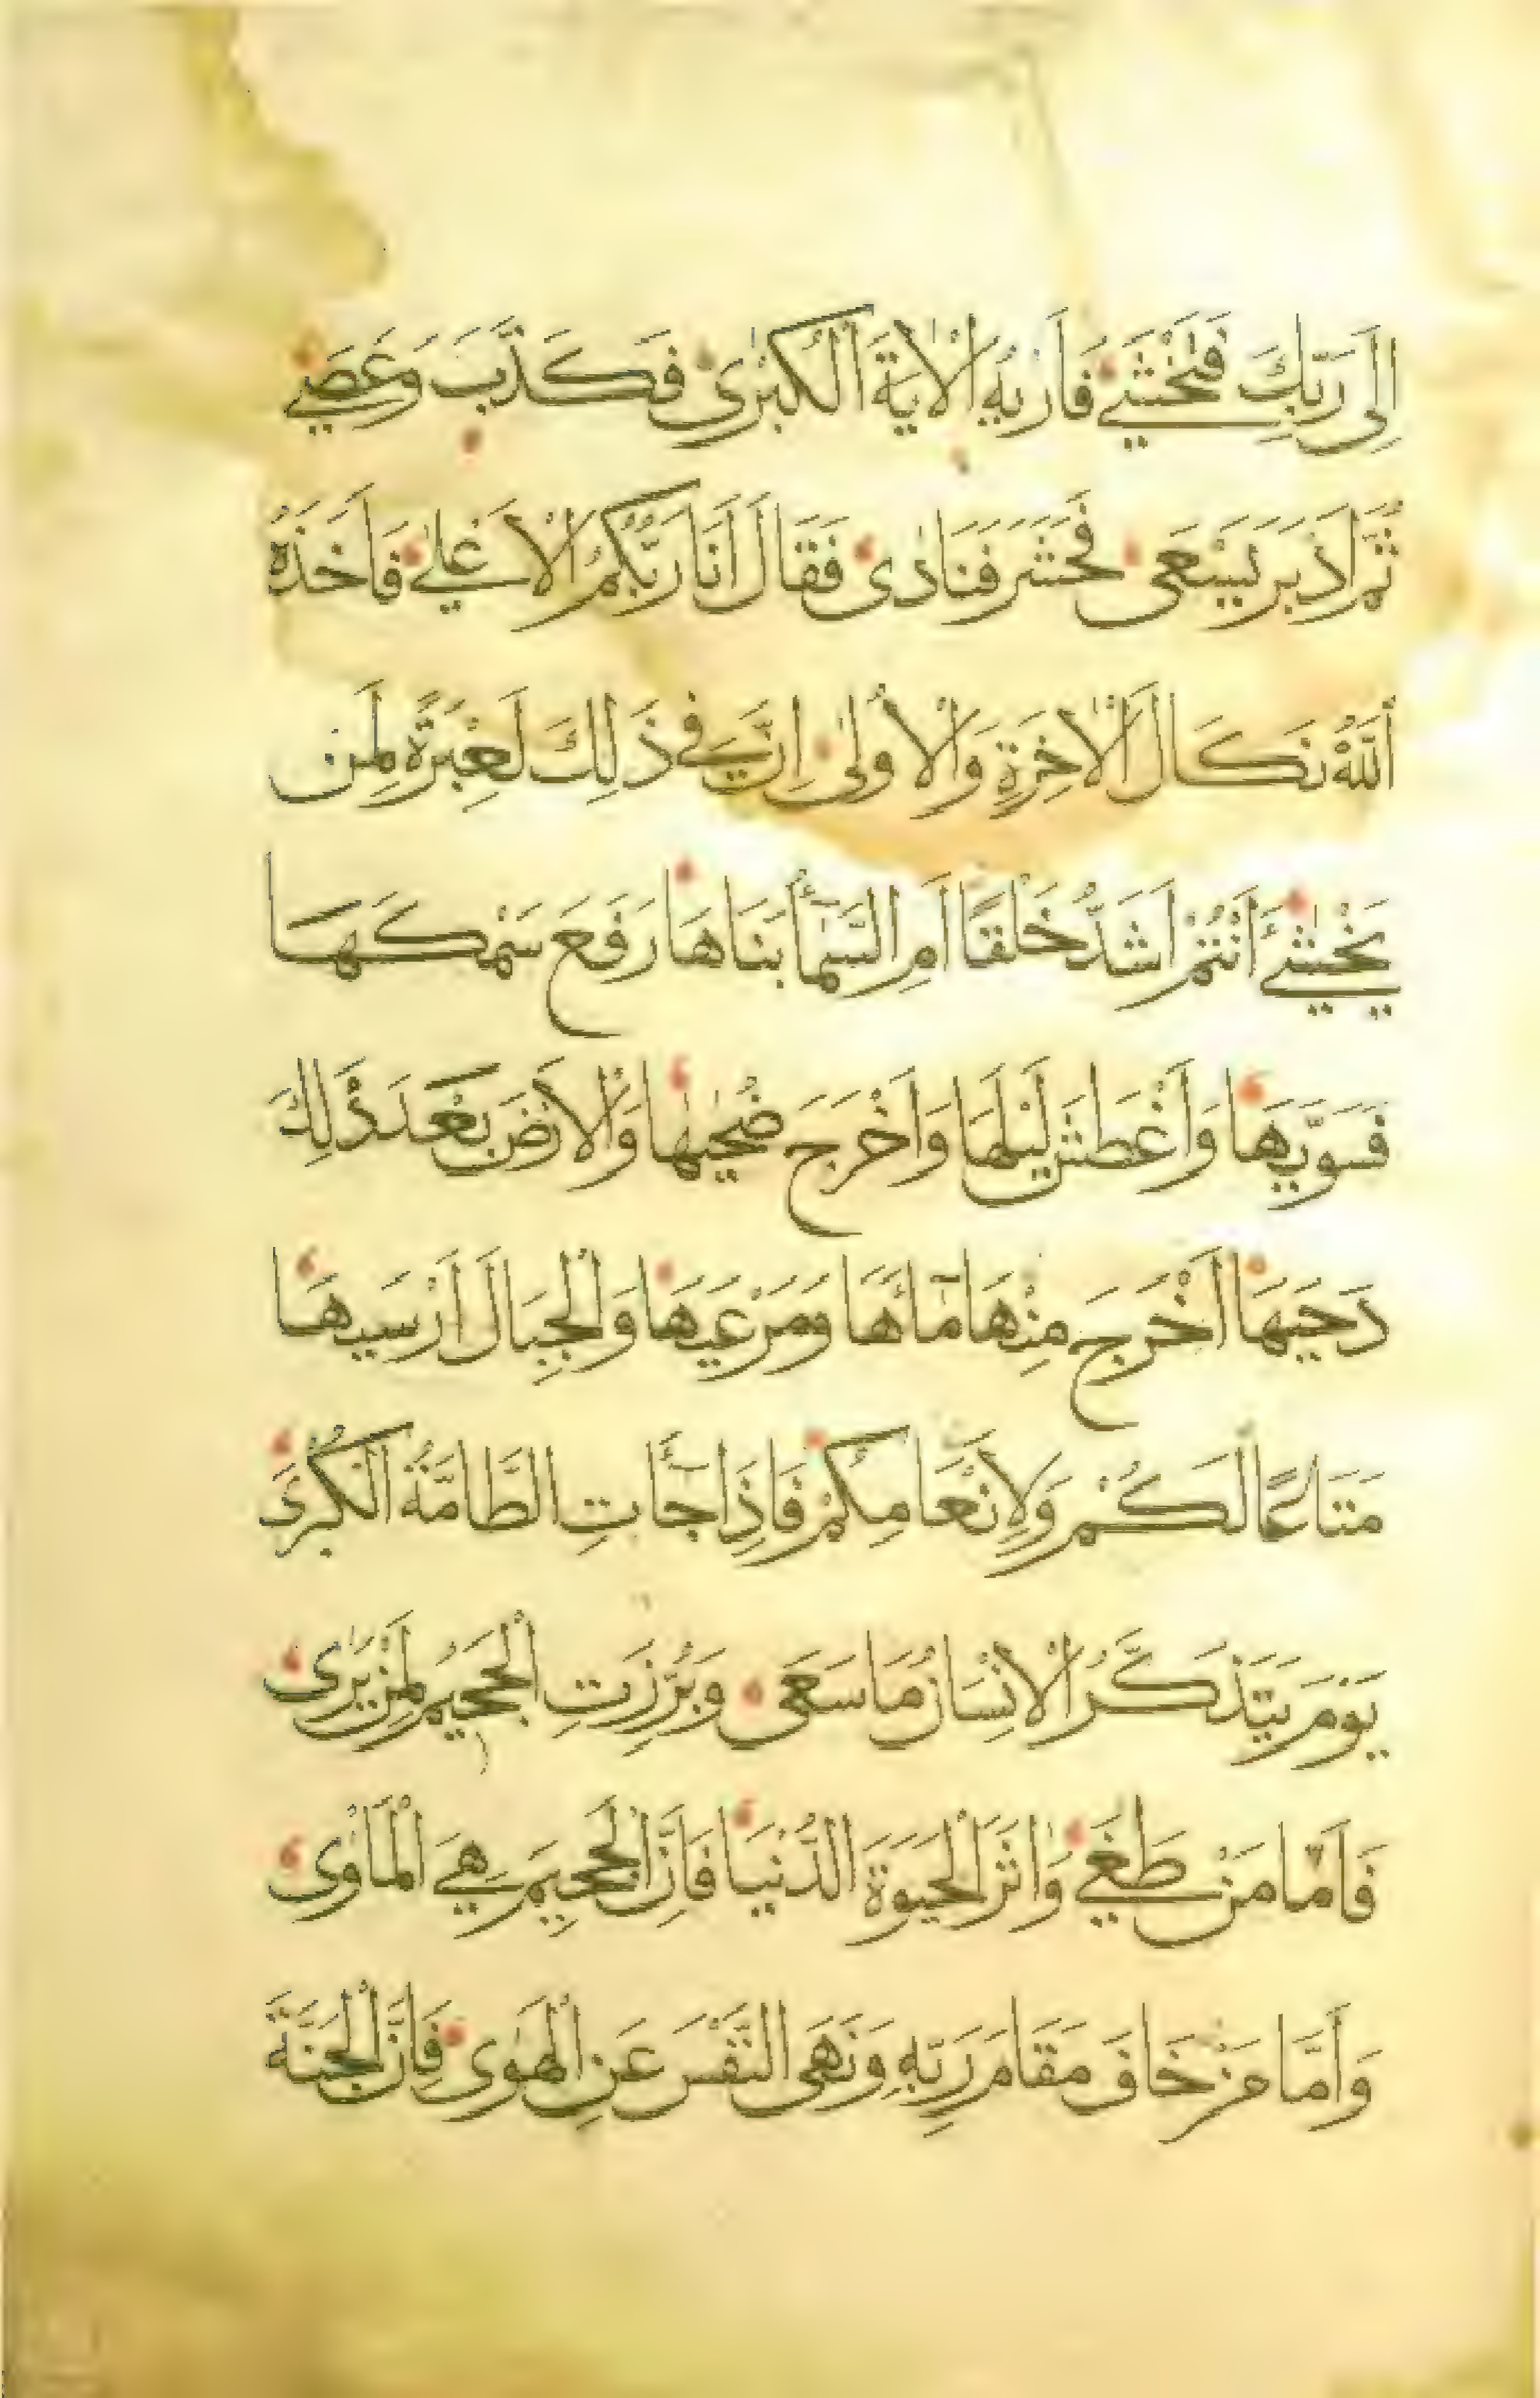 اِلَى رَبِّكَ فَتَخْشٰي فَاَرٰيهُ الْاٰيَةَ الْكُبْرٰى فَكَذَّبَ وَعَصٰي
ثُمَّ اَدْبَرَ يَسْعَى فَحَشَرَ فَنَادٰى فَقَالَ اَنَا رَبُّكُمُ الْاَعْلٰي فَاَخَذَهُ
اَللّٰهُ نَكَالَ الْاٰخِرَةِ وَالْاُولٰى اِنَّ فِي ذَلِكَ لَعِبْرَةً لِمَن
يَخْشٰي ءَاَنْتُمْ اَشَدُّ خَلْقًا اَمِ السَّمٰٓأُ بَنَاهَا رَفَعَ سَمْكَهَا
فَسَوّٰيهَا وَاَغْطَشَ لَيْلَهَا وَاَخْرَجَ ضُحٰيهَا وَالْاَرْضَ بَعْدَ ذٰلِكَ
دَحٰيهَا اَخْرَجَ مِنْهَا مَآءَهَا وَمَرْعٰيهَا وَالْجِبَالَ اَرْسٰيهَا
مَتَاعًا لَكُمْ وَلِاَنْعَامِكُمْ فَاِذَا جَآءَتِ الطَّامَّةُ الْكُبْرَى
يَوْمَ يَتَذَكَّرُ الْاِنْسَانُ مَا سَعَى وَبُرِّزَتِ الْجَحِيمُ لِمَنْ يَرٰى
فَاَمَّا مَنْ طَغَى وَاٰثَرَ الْحَيَوةَ الدُّنْيَا فَاِنَّ الْجَحِيمَ هِيَ الْمَاْوٰى
وَاَمَّا مَنْ خَافَ مَقَامَ رَبِّهِ وَنَهَى النَّفْسَ عَنِ الْهَوٰى فَاِنَّ الْجَنَّةَ